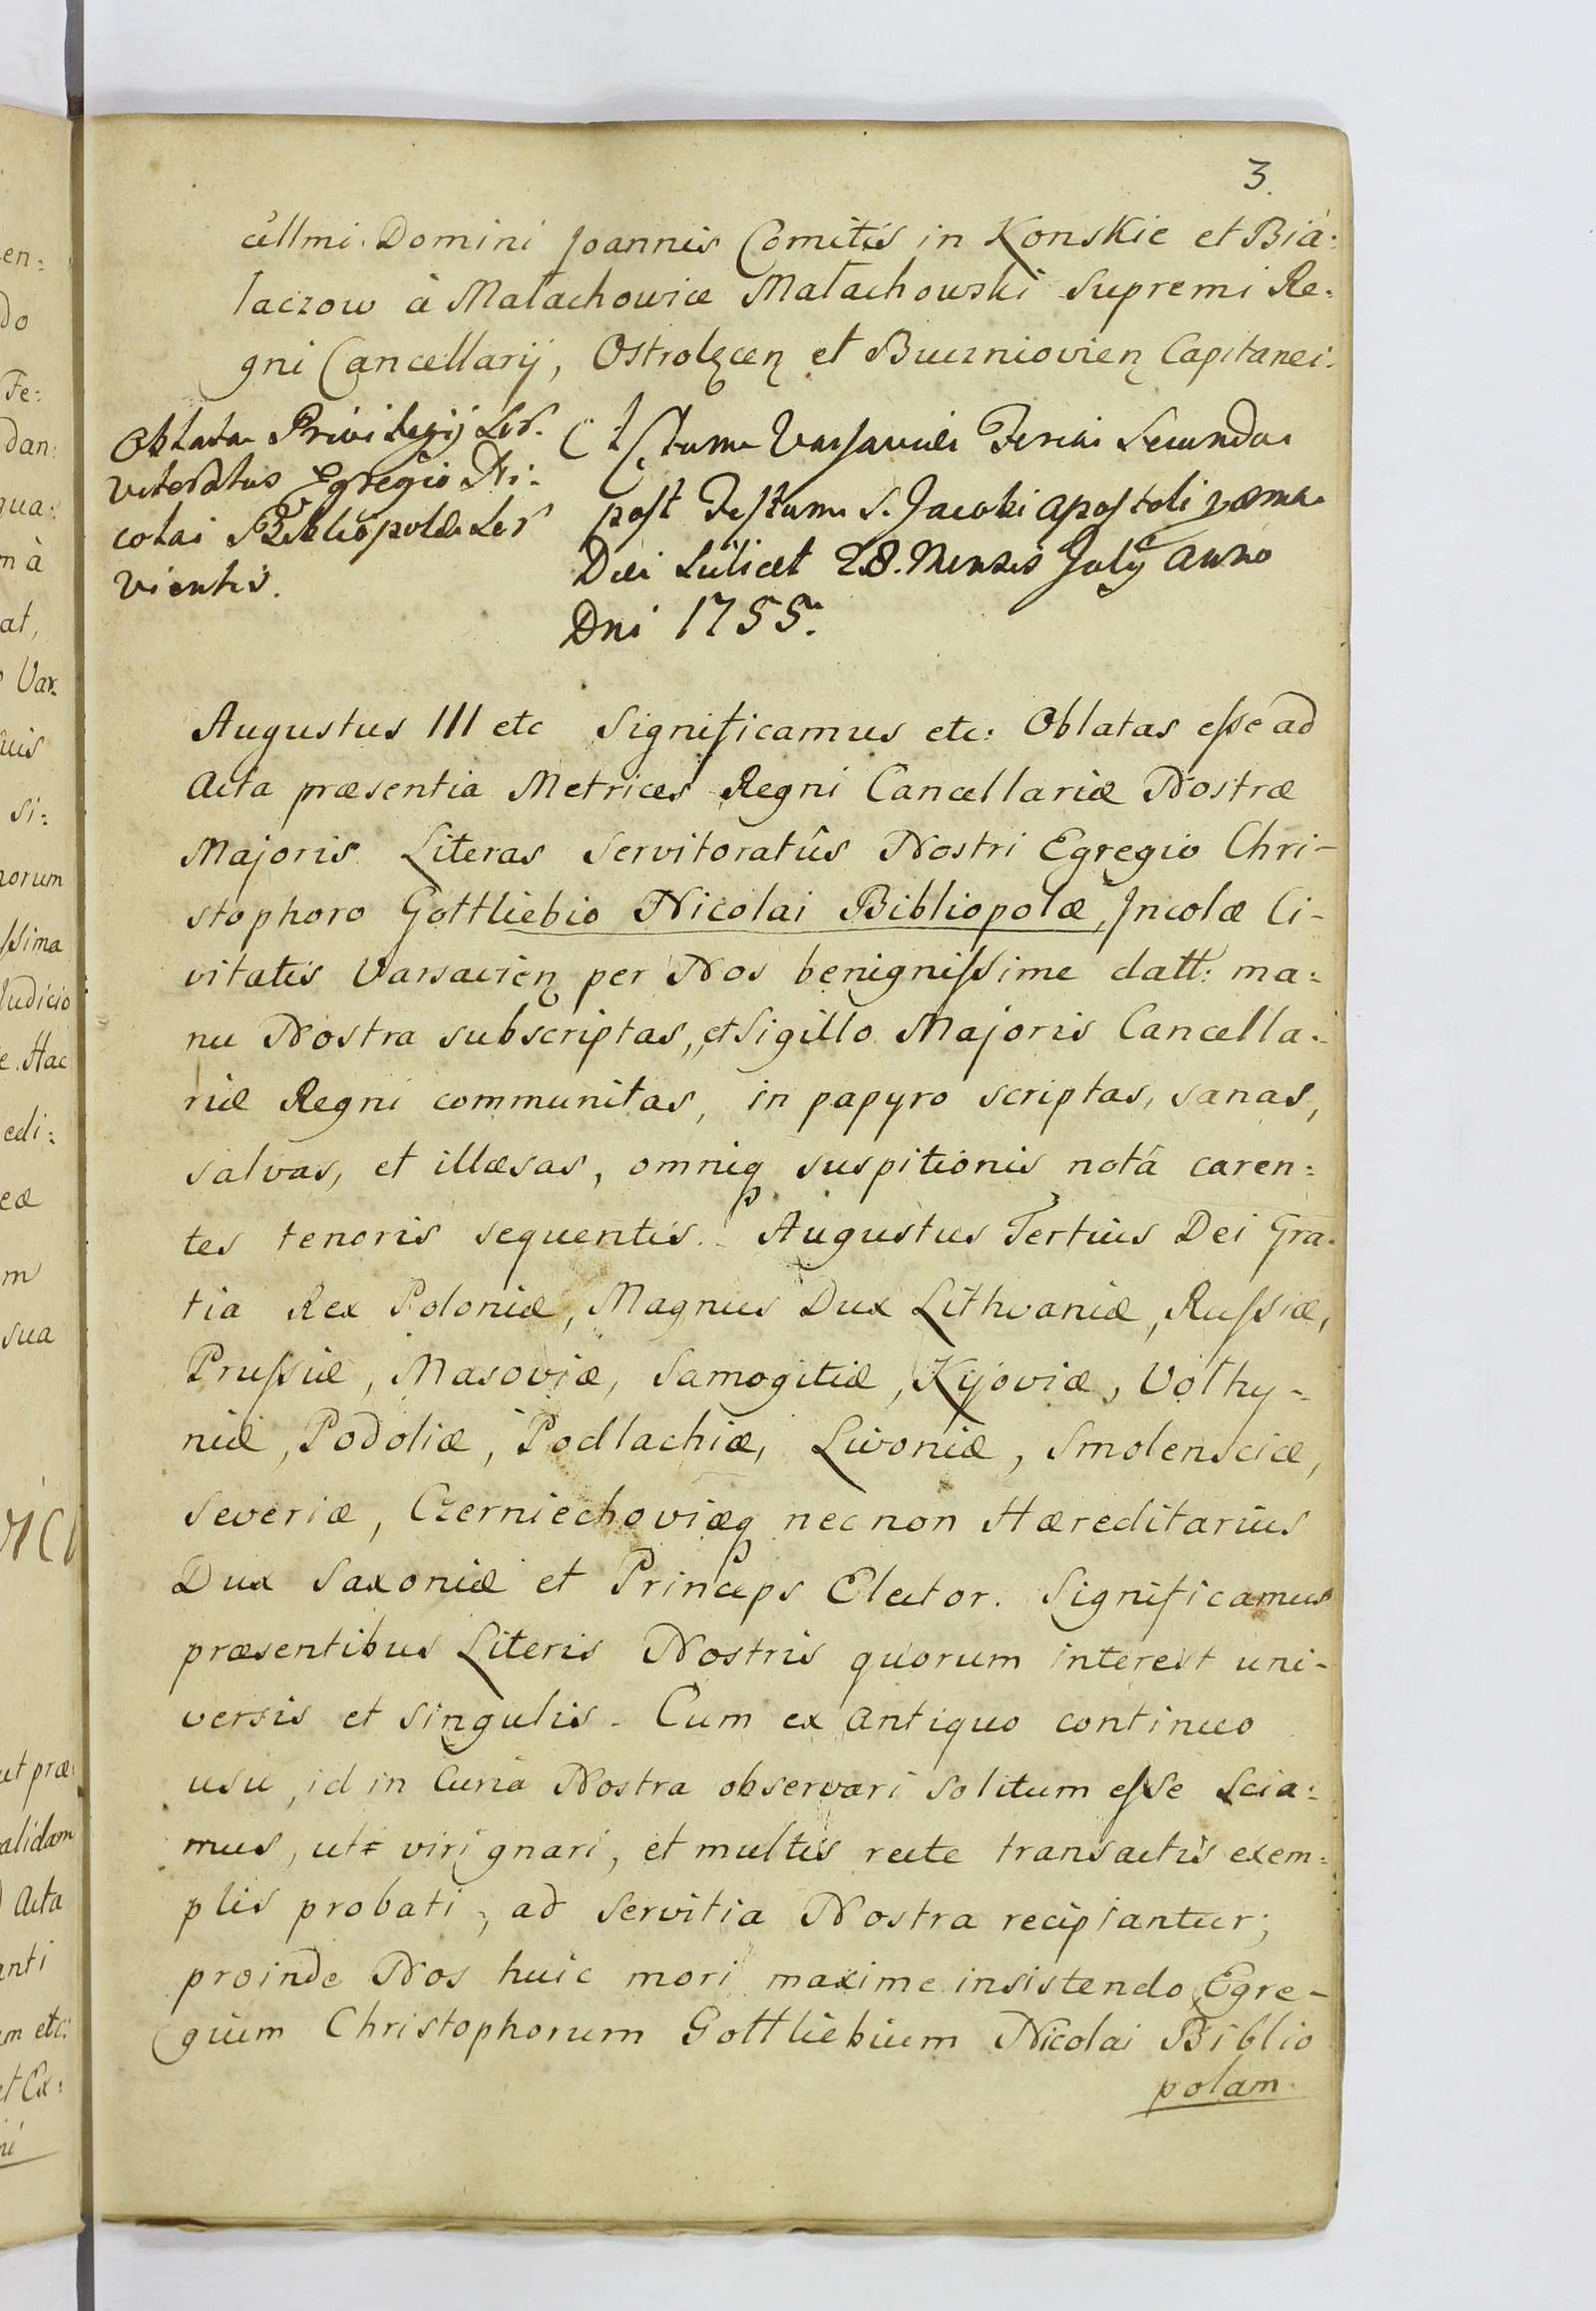 3.
cellmi Domini Joannis Comitis in Konskie et Bia:
łaczow à Małachowice Małachowski Supremi Re:
gni Cancellarij, Ostrolęcen et Buczniovien Capitanei.
Oblata Privilegij Ser.
vitoratus Egregio Ni:
colai Bibliopolæ Ser
vientis.
Actum Varsaviæ Feria Secunda
post Festum S. Jacobi Apostoli
Die scilicet 28. Mensis July Anno
Dni 1755.
Augustus III etc Significamus etc: Oblatas esse ad
Acta præsentia Metrices Regni Cancellariæ Nostræ
Majoris Literas Servitoratûs Nostri Egregio Chri-
stophoro Gottliebio Nicolai Bibliopolæ, Incolæ Ci-
vitatis Varsavien per Nos benignissime datt: ma:
nu Nostra subscriptas, et Sigillo Majoris Cancella:
riæ Regni communitas, in papyro scriptas, sanas,
salvas, et illæsas, omniq suspitionis notâ caren:
tes tenoris sequentis. Augustus Tertius Dei Gra:
tia Rex Poloniæ, Magnus Dux Lithvaniæ, Russiæ,
Prussiæ, Masoviæ, Samogitiæ, Kijoviæ, Volhy-
niæ, Podoliæ, Podlachiæ, Livoniæ, Smolensciæ,
Severiæ, Czerniechoviæq nec non Hæreditarius
Dux Saxoniæ et Princeps Elector. Significamus
præsentibus Literis Nostris quorum interest uni-
versis et singulis. Cum ex antiquo continuo
usu, id in Curiâ Nostra observari solitum esse scia:
mus, ut viri gnari, et multis recte transactis exem:
plis probati, ad servitia Nostra recipiantur;
proinde Nos huic mori maxime insistendo, Egre-
gium Christophorum Gottliebium Nicolai Biblio
polam.